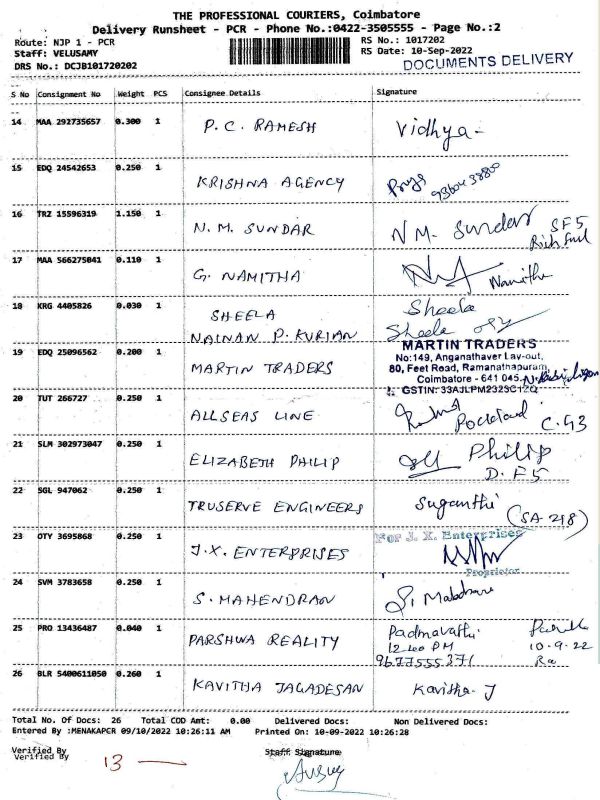 THE PROFESSIONAL COURIERS, Coimbatore
Delivery Runsheet - PCR - Phone No.:0422-3505555 - Page No.:2
Route: NJP 1 - PCR
Staff: VELUSAMY
DRS No.: DCJB101720202
RS No.: 1017202
RS Date: 10-Sep-2022
DOCUMENTS DELIVERY
S No Consignment No Weight PCS Consignee Details Signature
14 MAA 292735657 0.300 1 P.C. RAMESH Vidhya
15 EDQ 24542653 0.250 1 KRISHNA AGENCY
16 TRZ 15596319 1.150 1 N.M. SUNDAR N M. Sundar SF5
17 MAA 566275041 0.110 1 G. NAMITHA Namitha
18 KRG 4405826 0.030 1 SHEELA Sheela
NAINAN P. KURIAN Sheela
19 EDQ 25096562 0.200 1 MARTIN TRADERS
MARTIN TRADERS
No:149, Anganathaver Lay-out,
80, Feet Road, Ramanathapuram,
Coimbatore - 641 045.
GSTIN: 33AJLPM2323C1ZQ
20 TUT 266727 0.250 1 ALLSEAS LINE C.G3
21 SLM 302973047 0.250 1 ELIZABETH PHILIP Philip
D.F5
22 SGL 947062 0.250 1 TRUSERVE ENGINEERS Suganthi
(SA-218)
23 OTY 3695868 0.250 1 J.X. ENTERPRISES
For J. X. Enterprises
Proprietor
24 SVM 3783658 0.250 1 S. MAHENDRAN
25 PRO 13436487 0.040 1 PARSHWA REALITY Padmavathi
10.9.22
9677555371
26 BLR 5400611050 0.260 1 KAVITHA JAGADESAN Kavitha. J
Total No. Of Docs: 26 Total COD Amt: 0.00 Delivered Docs: Non Delivered Docs:
Entered By :MENAKAPCR 09/10/2022 10:26:11 AM Printed On: 10-09-2022 10:26:28
Verified By
Verified By
13
Staff Signature